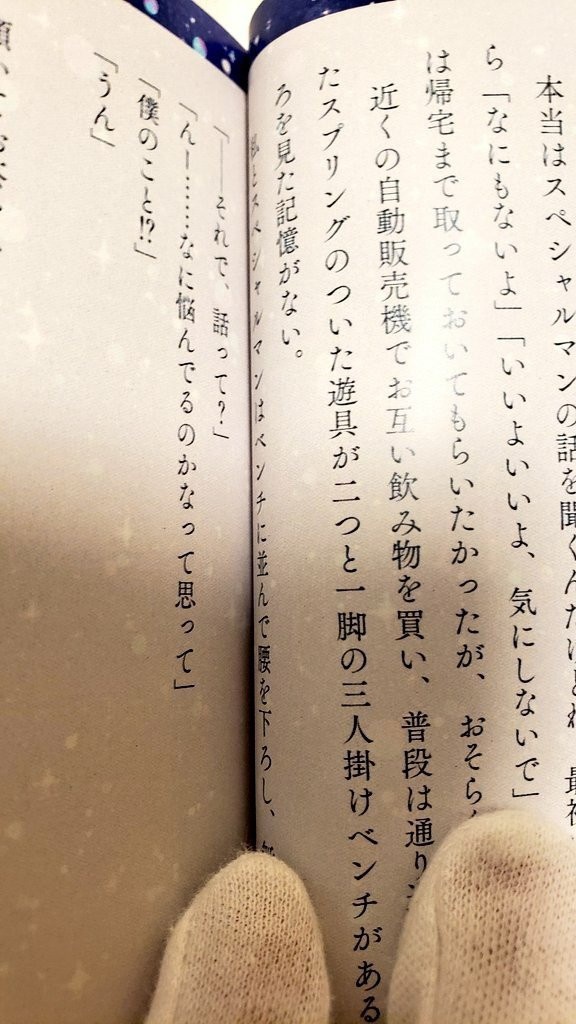 本当はスペシャルマンの話を聞くんだけどね
ら「なにもないよ」「いいよいいよ、気にしないで」
は帰宅まで取っておいてもらいたかったが、おそらく
近くの自動販売機でお互い飲み物を買い、普段は通り
たスプリングのついた遊具が二つと一脚の三人掛けベンチがある
ろを見た記憶がない。
私とスペシャルマンはベンチに並んで腰を下ろし、
「――それで、話って？」
「んー……なに悩んでるのかなって思って」
「僕のこと!?」
「うん」